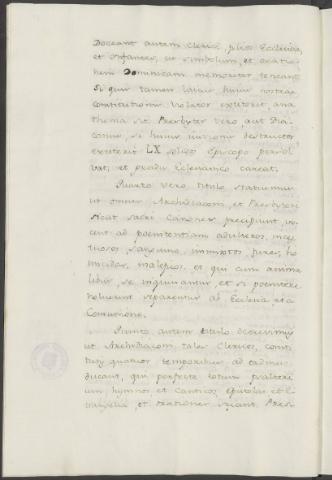 Doceant autem Clerici, filios Ecclesiæ,
et Infantes, ut simbolum, et oratio-
nem Dominicam memoriter teneant
Si quis tamen laicus huius nostræ
Constitutionis Violator extiterit, ana
thema sit Presbyter vero aut Dia-
conus, si huius iussionis destructor
extiterit LX solidos Episcopo persol
vat, et gradu Eclesiastico careat.
Quarto vero titulo statuimus
ut omnes Archidiaconi, et Presbyteri
sicut sacri Canones precipiunt, vo-
cent ad poenitentiam adulteros, inces
tuosos, sanguine immixtos, fures, ho
micidas, maleficos, et qui cum anima
libus se inquinantur, et si poenitere
noluerint separentur ab Ecclesia et a
Comunione.
Quinto autem titulo decrevimus
ut Archidiaconi tales Clericos, consti
tutis quatuor temporibus ad ordines
ducant, qui perfecte totum psalteri
um hymnos et Cantica, epistolas et E-
vangelia, et orationes sciant. Pres-